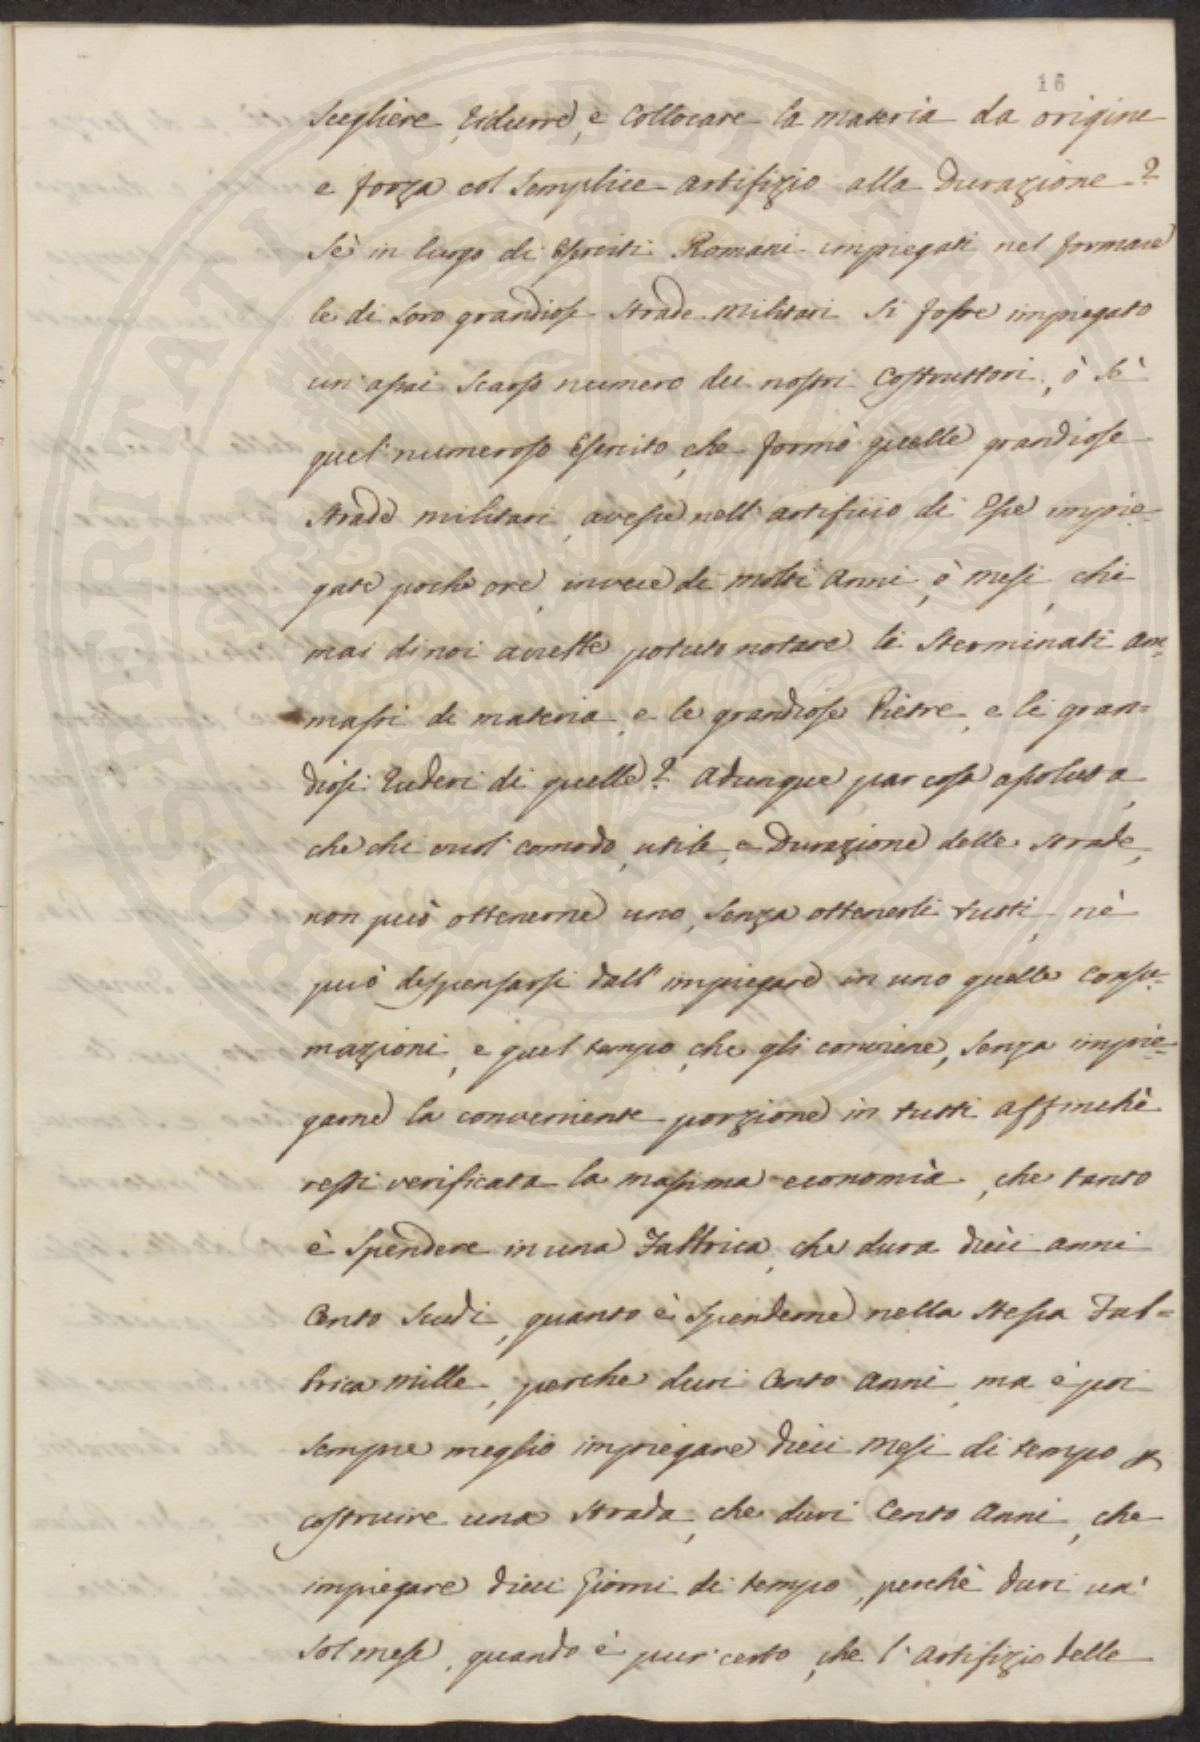 16
Scegliere, ridurre, e Collocare la materia da origine
e forza col semplice artifizio alla Durazione?
Sè in luogo di Eserciti Romani impiegati nel formare
le di loro grandiose strade militari si fosse impiegato
un' assai scarso numero dei nostri Costruttori, ò sè
quel' numeroso Esercito, che formò quelle grandiose
strade militari, avesse nell' artificio di Esse impie-
gate poche ore, invece di molti Anni, ò mesi, chi
mai di noi avrebbe potuto notare li sterminati am-
massi di materia, e le grandiose Pietre, e li gran=
diosi ruderi di quelle? Adunque par cosa assoluta,
che chi vuol' comodo, utile, e Durazione delle strade,
non può ottenerne uno, senza ottenerli tutti, nè
può dispensarsi dall' impiegare in uno quelle consu-
mazioni, e quel tempo, che gli conviene, senza impie=
garne la conveniente porzione in tutti affinchè
resti verificata la massima economìa, che tanto
è spendere in una Fabbrica, che dura dieci anni
Cento scudi, quanto è spenderne nella stessa Fab=
brica mille, perche duri Cento Anni, ma è poi
sempre meglio impiegare dieci mesi di tempo p
costruire una strada, che duri Cento Anni, che
impiegare dieci Giorni di tempo, perchè duri un'
sol mese, quando è pur' certo, che l'artifizio delle
POSTERITATI PVBLICAE VTILITATI